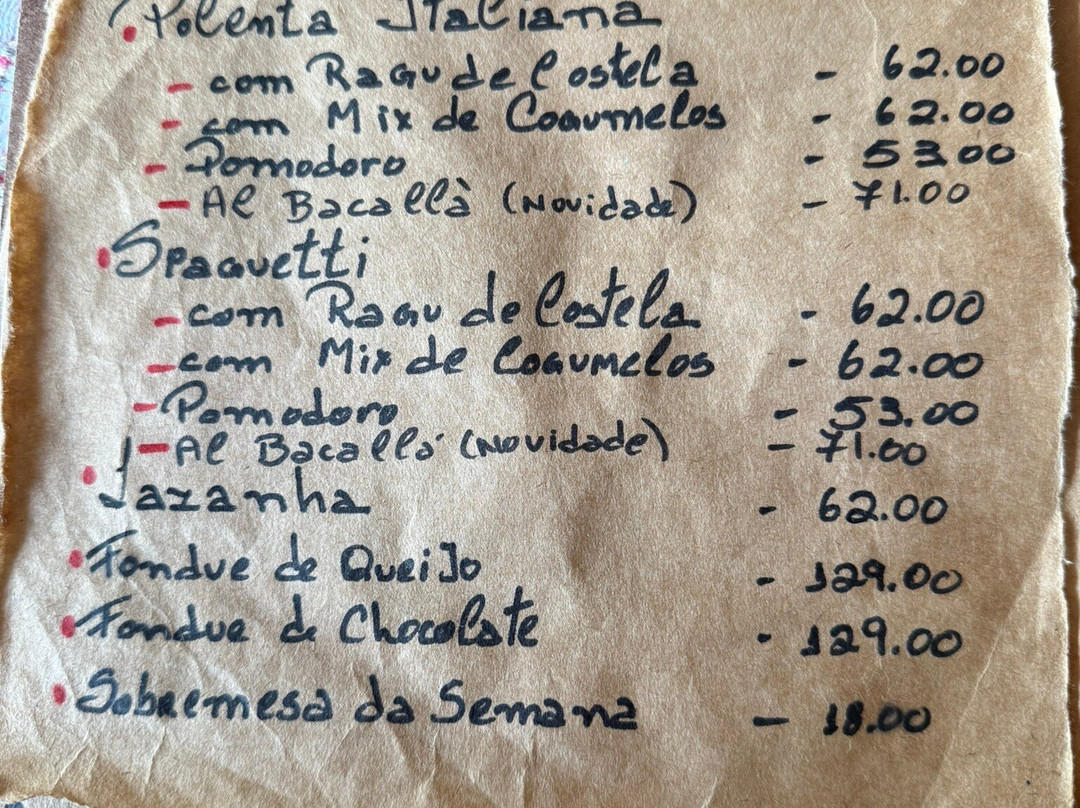 Polenta Italiana
- com Ragu de Costela - 62.00
- com Mix de Cogumelos - 62.00
- Pomodoro - 53.00
- Al Bacallà (Novidade) - 71.00
Spaguetti
- com Ragu de Costela - 62.00
- com Mix de Cogumelos - 62.00
- Pomodoro - 53.00
- Al Bacallá (Novidade) - 71.00
Lazanha - 62.00
Fondue de Queijo - 129.00
Fondue de Chocolate - 129.00
Sobremesa da Semana - 18.00